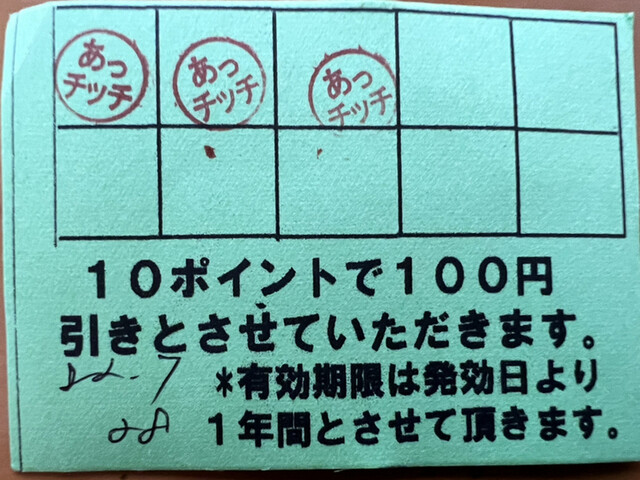 あっ
チッチ
あっ
チッチ
あっ
チッチ
１０ポイントで１００円
引きとさせていただきます。
22.7
28
*有効期限は発効日より
１年間とさせて頂きます。